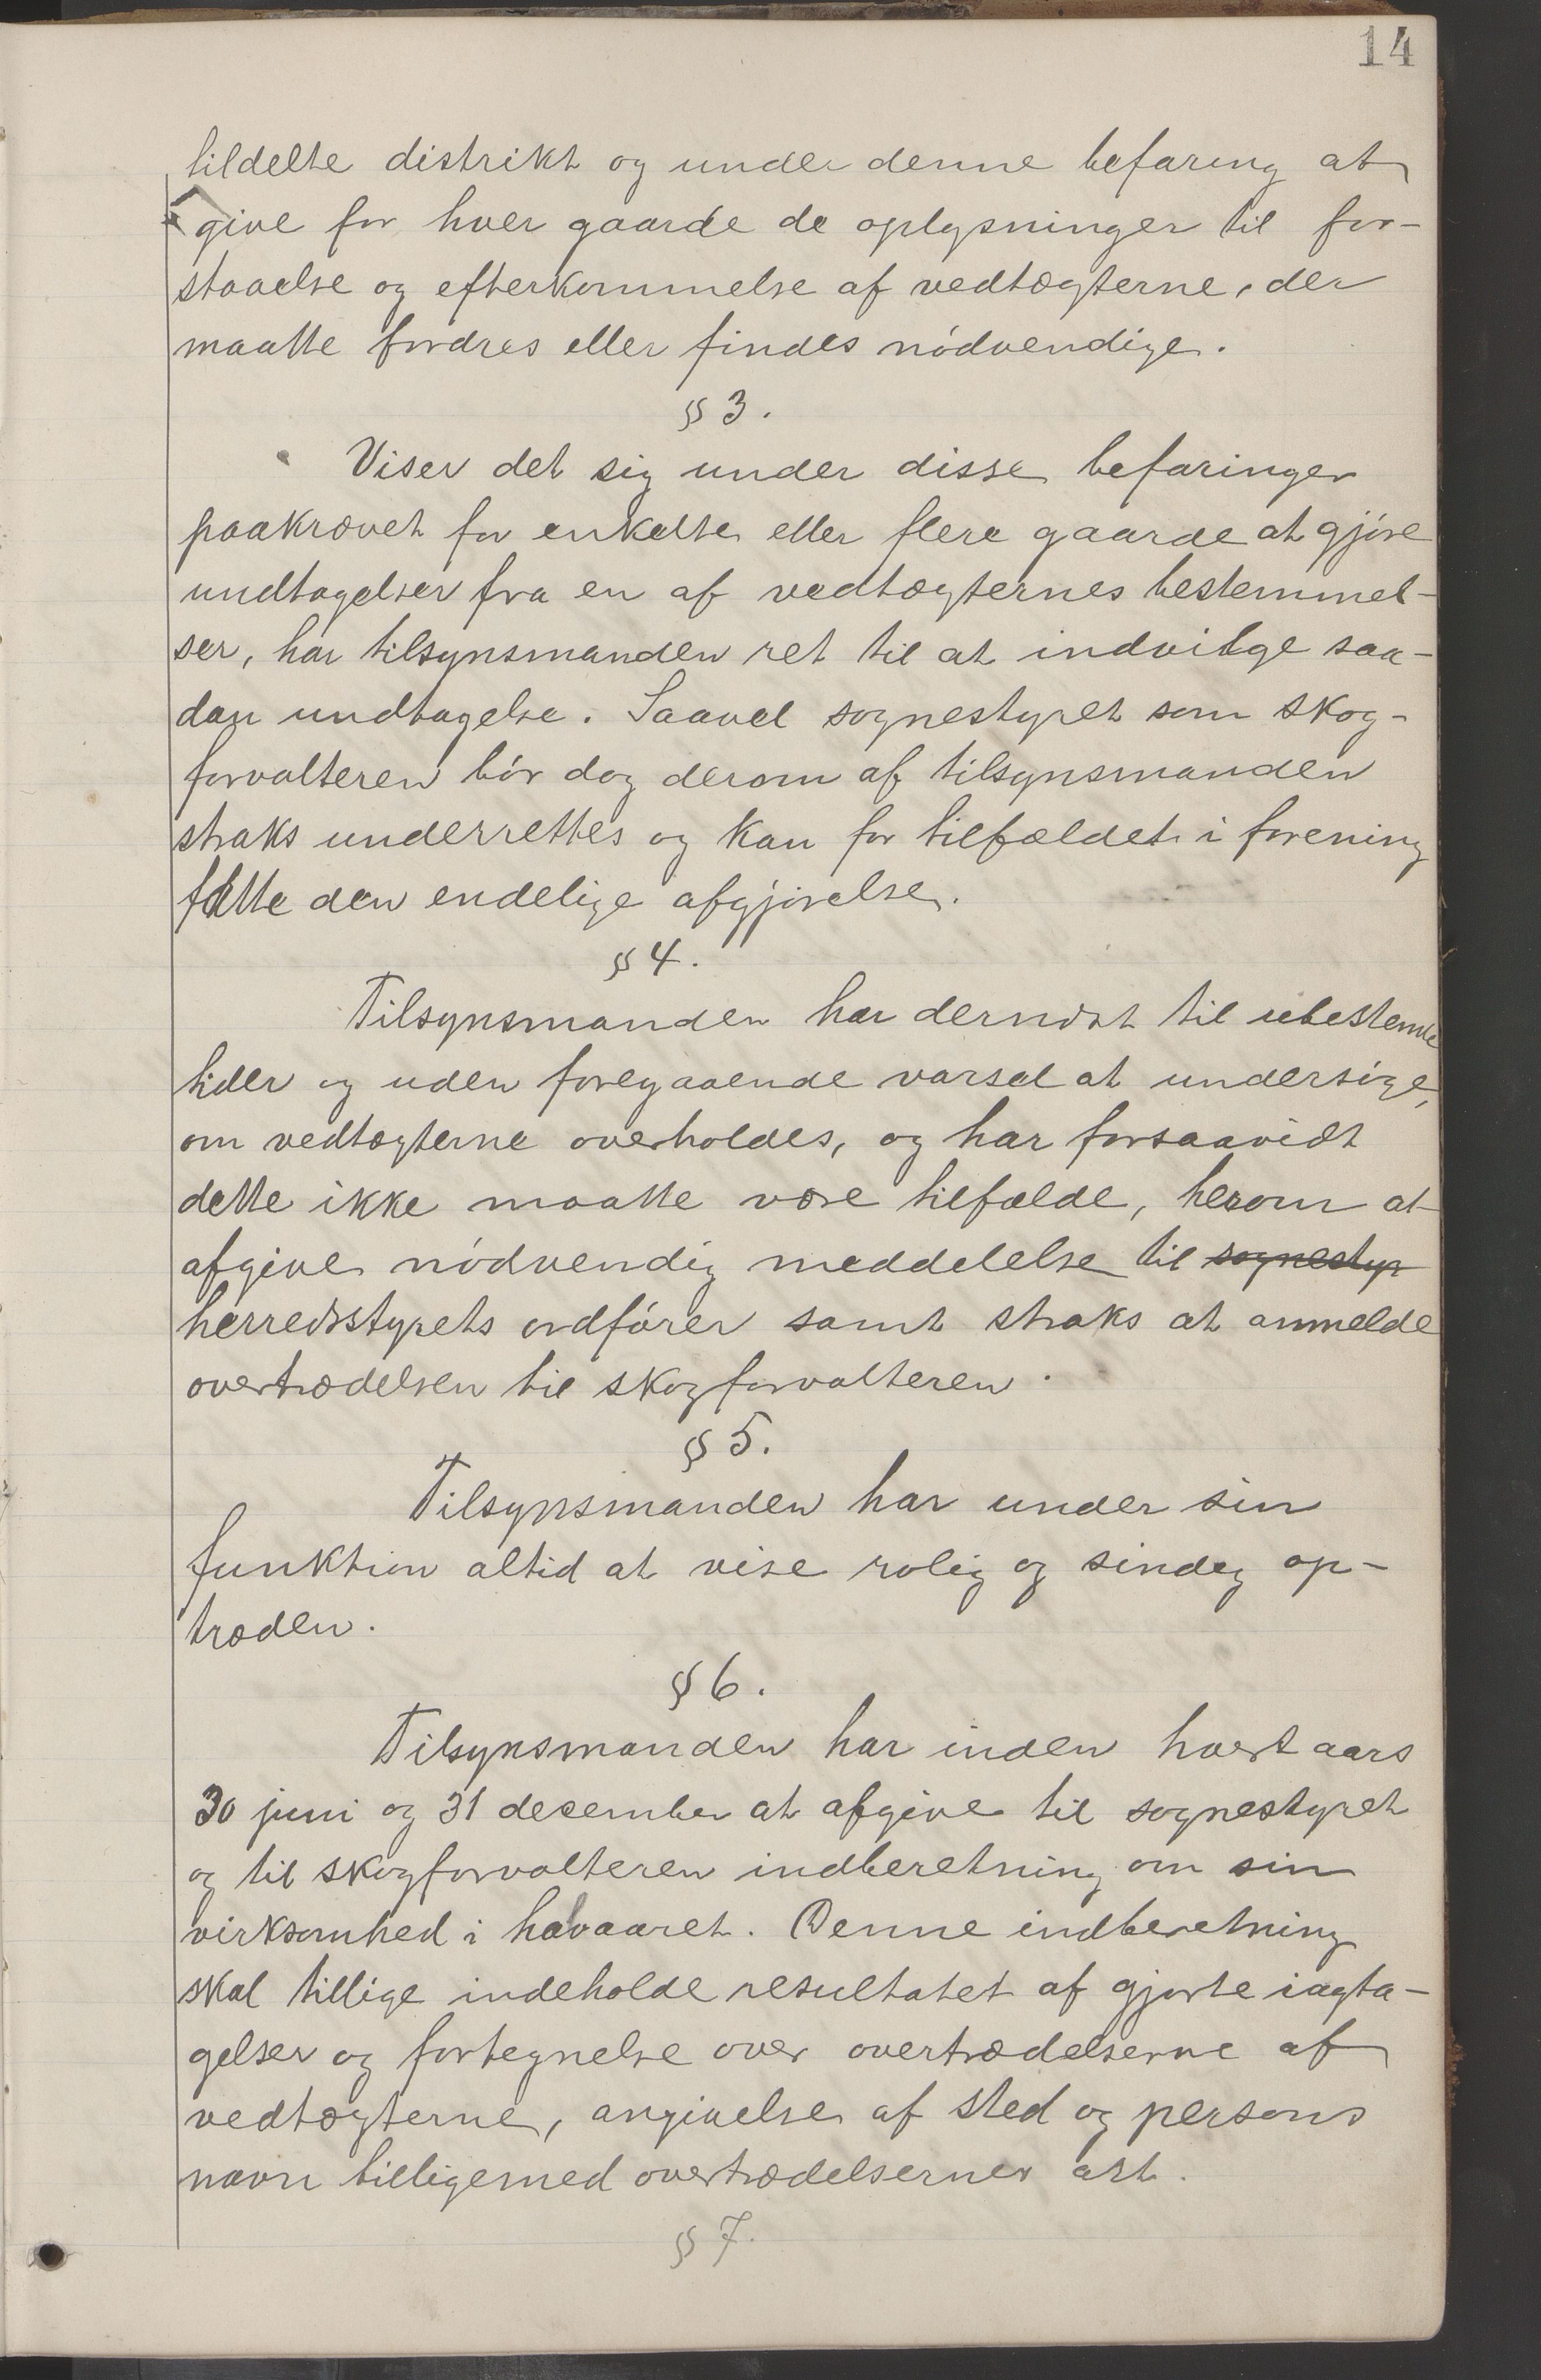 14
tildelte distrikt og under denne befaring at
give for hver gaarde de oplysninger til for-
staaelse og efterkommelse af vedtægterne, der
maatte fordres eller findes nödvendige.
§ 3.
Viser det sig under disse befaringer
paakrævet for enkelte eller flere gaarde at gjöre
undtagelser fra en af vedtægternes bestemmel-
ser, har tilsynsmanden ret til at indvilge saa-
dan undtagelse. Saavel sognestyret som skog-
forvalteren bör dog derom af tilsynsmanden
straks underrettes og kan for tilfældet i forening
fatte den endelige afgjörelse.
§ 4.
Tilsynsmanden har dernæst til ubestemte
tider og uden foregaaende varsel at undersöge,
om vedtægterne overholdes, og har forsaavidt
dette ikke maatte være tilfælde, herom at
afgive nödvendig meddelelse til sognestyr
herredsstyrets ordförer samt straks at anmelde
overtrædelsen til skogforvalteren.
§ 5.
Tilsynsmanden har under sin
funktion altid at vise rolig og sindig op-
træden.
§ 6.
Tilsynsmanden har inden hvert aars
30 juni og 31 december at afgive til sognestyret
og til skogforvalteren indberetning om sin
virksomhed i halvaaret. Denne indberetning
skal tillige indeholde resultatet af gjorte iagta-
gelser og fortegnelse over overtrædelserne af
vedtægterne, angivelse af sted og persons
navn tilligemed overtrædelsernes art.
§ 7.